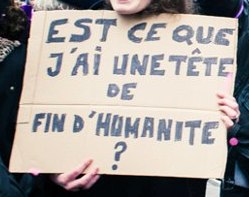 EST CE QUE
J'AI UNE TÊTE
DE
FIN D'HUMANITE
?